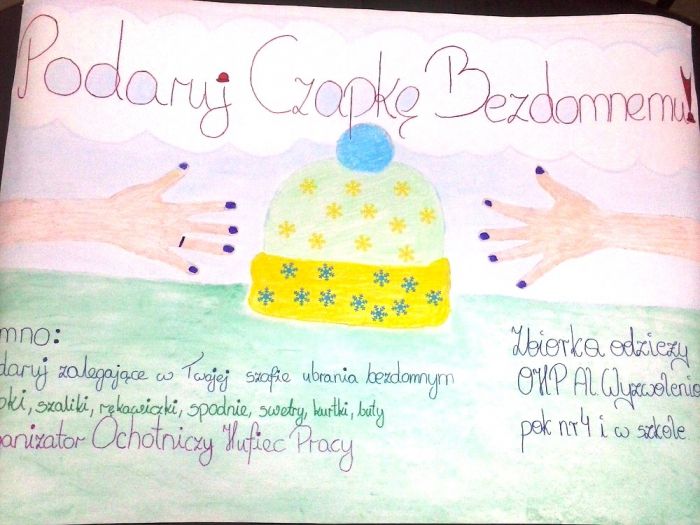 Podaruj Czapkę Bezdomnemu!
mno:
daruj zalegające w Twojej szafie ubrania bezdomnym
pki, szaliki, rękawiczki, spodnie, swetry, kurtki, buty
ganizator Ochotniczy Hufiec Pracy
Zbiorka odzieży
OHP Al. Wyzwolenia
pok nr 4 i w szkole